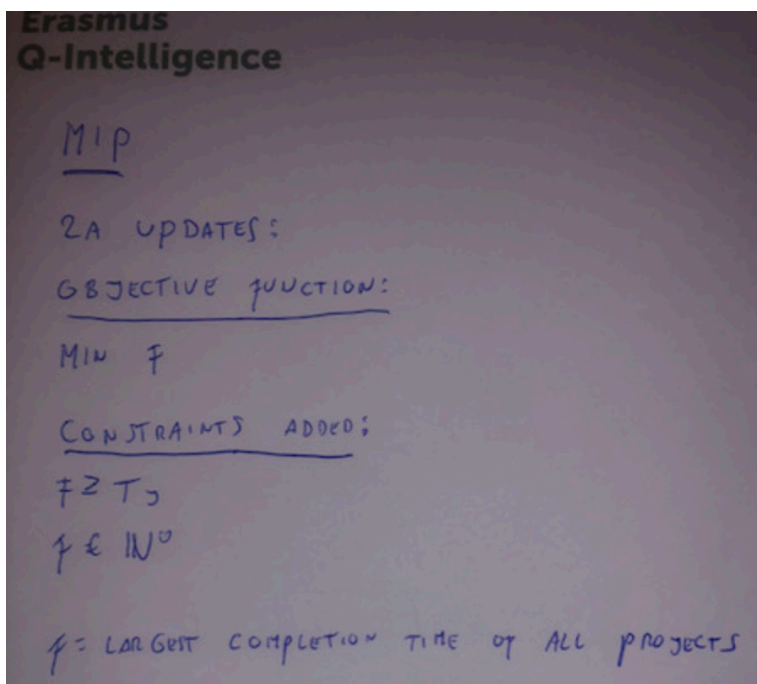 Erasmus
Q-Intelligence
MIP
2A UPDATES:
OBJECTIVE FUNCTION:
MIN F
CONSTRAINTS ADDED:
F ≥ Tj
F ∈ ℕ⁰
F = LARGEST COMPLETION TIME OF ALL PROJECTS